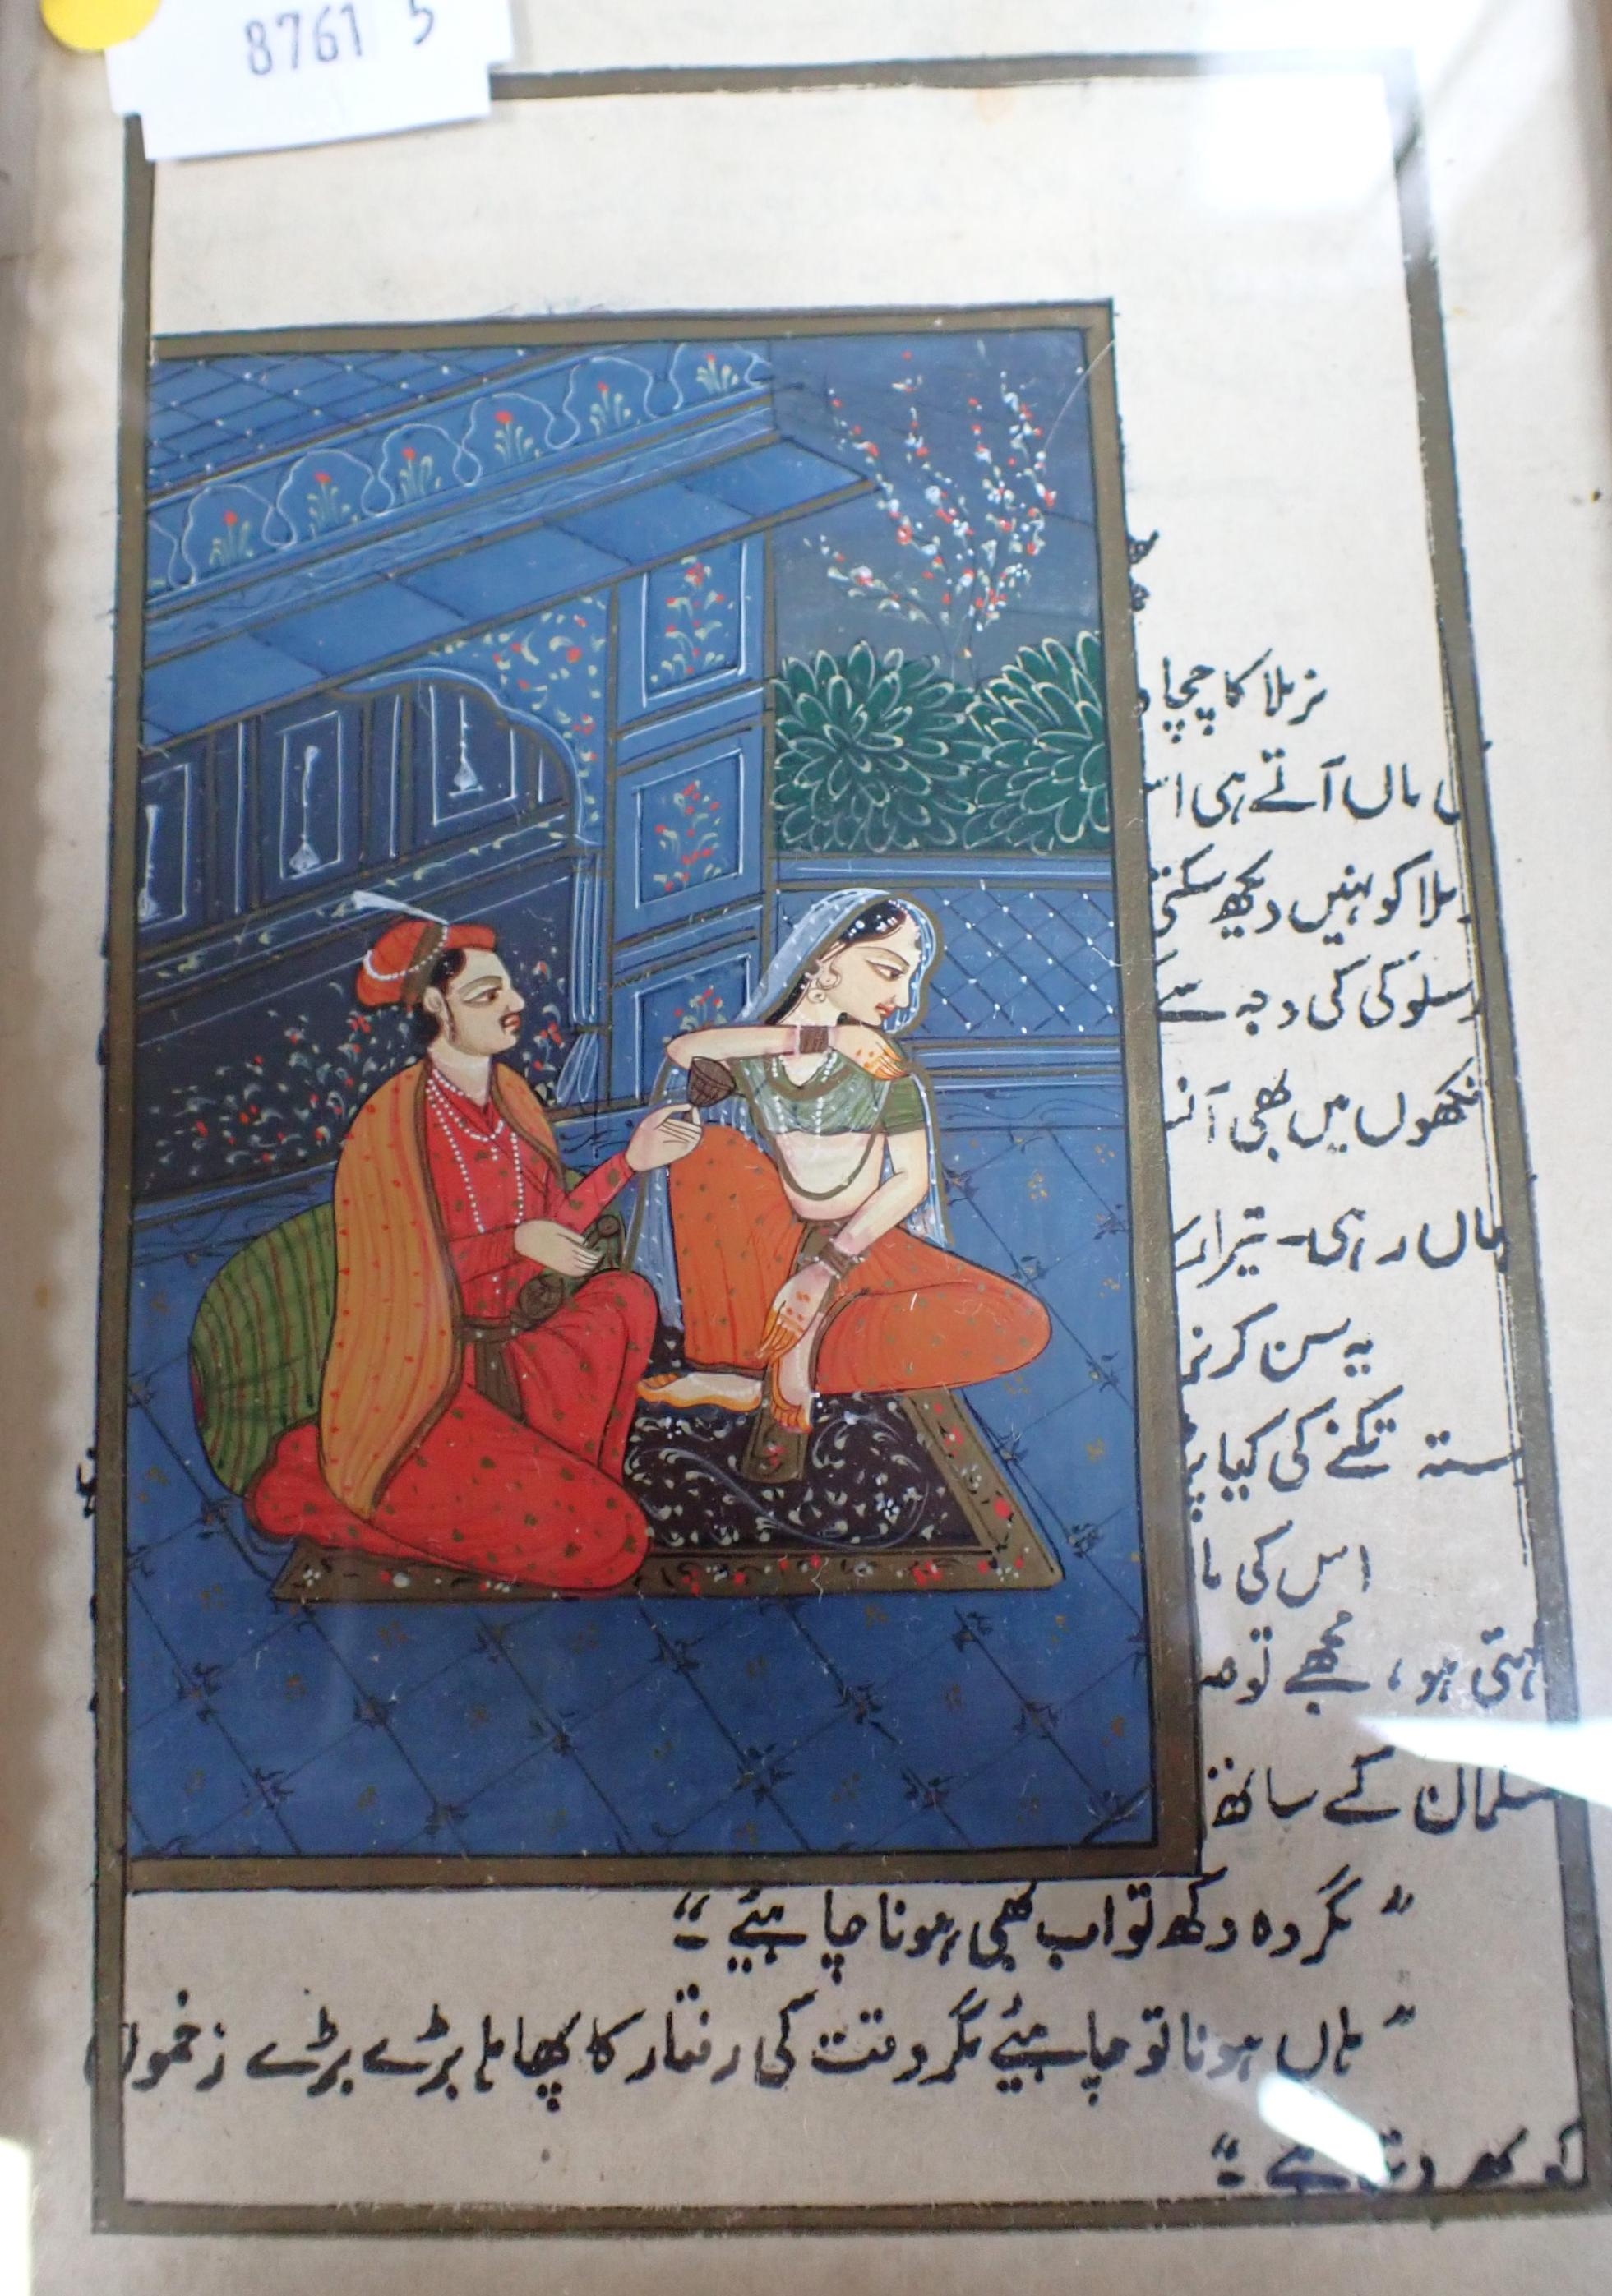 8761 5
نرملا کا چچا
ں ماں آتے ہی ا
ملا کو نہیں دیکھ سکتی
سلوکی کی وجہ سے
نکھوں میں بھی آنـ
ماں رہی۔ تیرا
یہ سن کر نر
ستہ تکنے کی کیا
اس کی ما
ہتی ہو، مجھے تو
سلمان کے ساتھ
" مگر وہ دکھ تو اب بھی ہونا چاہئیے "
" ہاں ہونا تو چاہئیے مگر وقت کی رفتار کا پھاہا بڑے بڑے زخموں
کو بھر دیتا ہے "